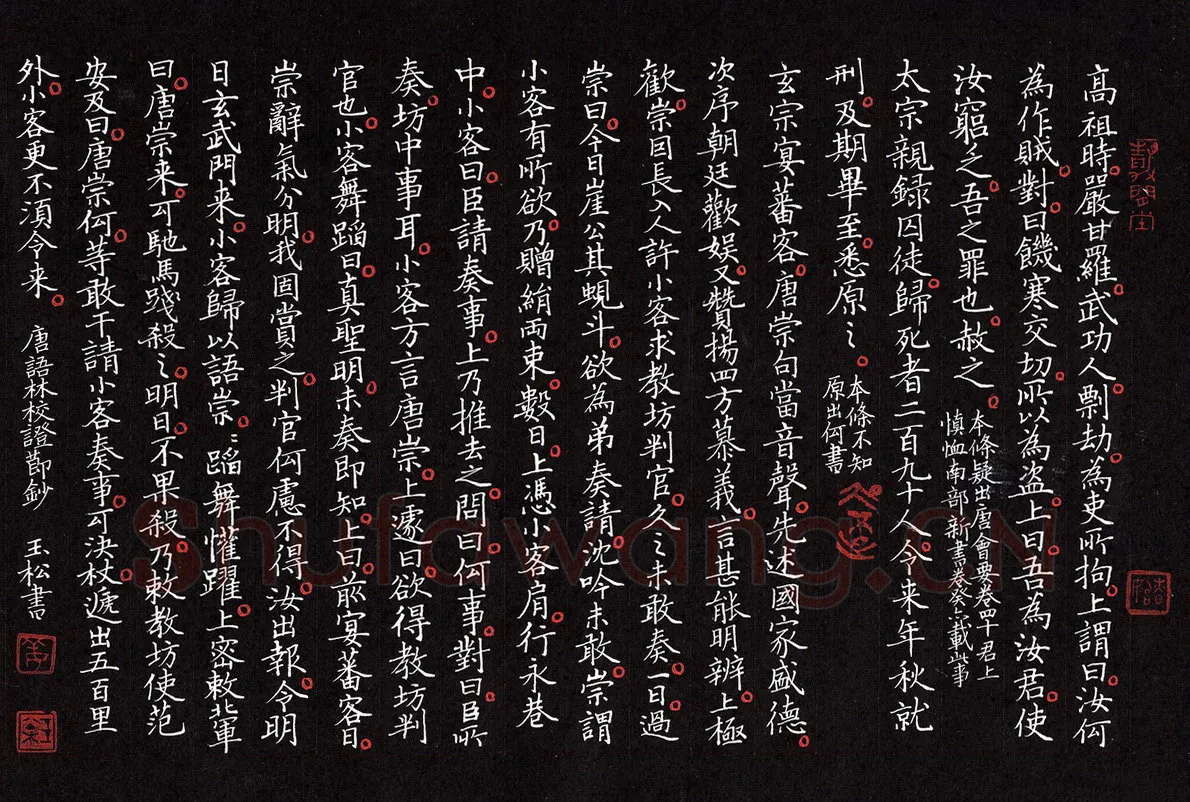 高祖時。嚴甘羅。武功人。剽劫。為吏所拘。上謂曰。汝何
為作賊。對曰。饑寒交切。所以為盜。上曰。吾為汝君。使
汝窮乏。吾之罪也。赦之。
本條疑出唐會要卷四十君上
慎恤南部新書卷癸亦載此事
太宗親録囚徒。歸死者二百九十人。令来年秋就
刑。及期畢至。悉原之。
本條不知
原出何書
玄宗宴蕃客。唐崇句當音聲。先述國家盛德。
次序朝廷歡娱。又贊揚四方慕義。言甚能明辨。上極
歡。崇因長入人許小客求教坊判官。久之未敢奏。一日過
崇曰。今日崖公甚蜆斗。欲為弟奏請。沈吟未敢。崇謂
小客有所欲。乃贈絹兩束。數日。上憑小客肩。行永巷
中。小客曰。臣請奏事。上乃推去之。問曰。何事。對曰。臣所
奏。坊中事耳。小客方言唐崇。上遽曰。欲得教坊判
官也。小客舞蹈曰。真聖明。未奏即知。上曰。前宴蕃客日。
崇辭氣分明。我固賞之。判官何慮不得。汝出報。令明
日玄武門来。小客歸以語崇。崇蹈舞懽躍。上密敕北軍
曰。唐崇来。可馳馬踐殺之。明日。不果殺。乃敕教坊使范
安及曰。唐崇何等。敢干請小客奏事。可決杖。遞出五百里
外。小客更不須令来。
唐語林校證節鈔　玉松書
Shufawang.CN